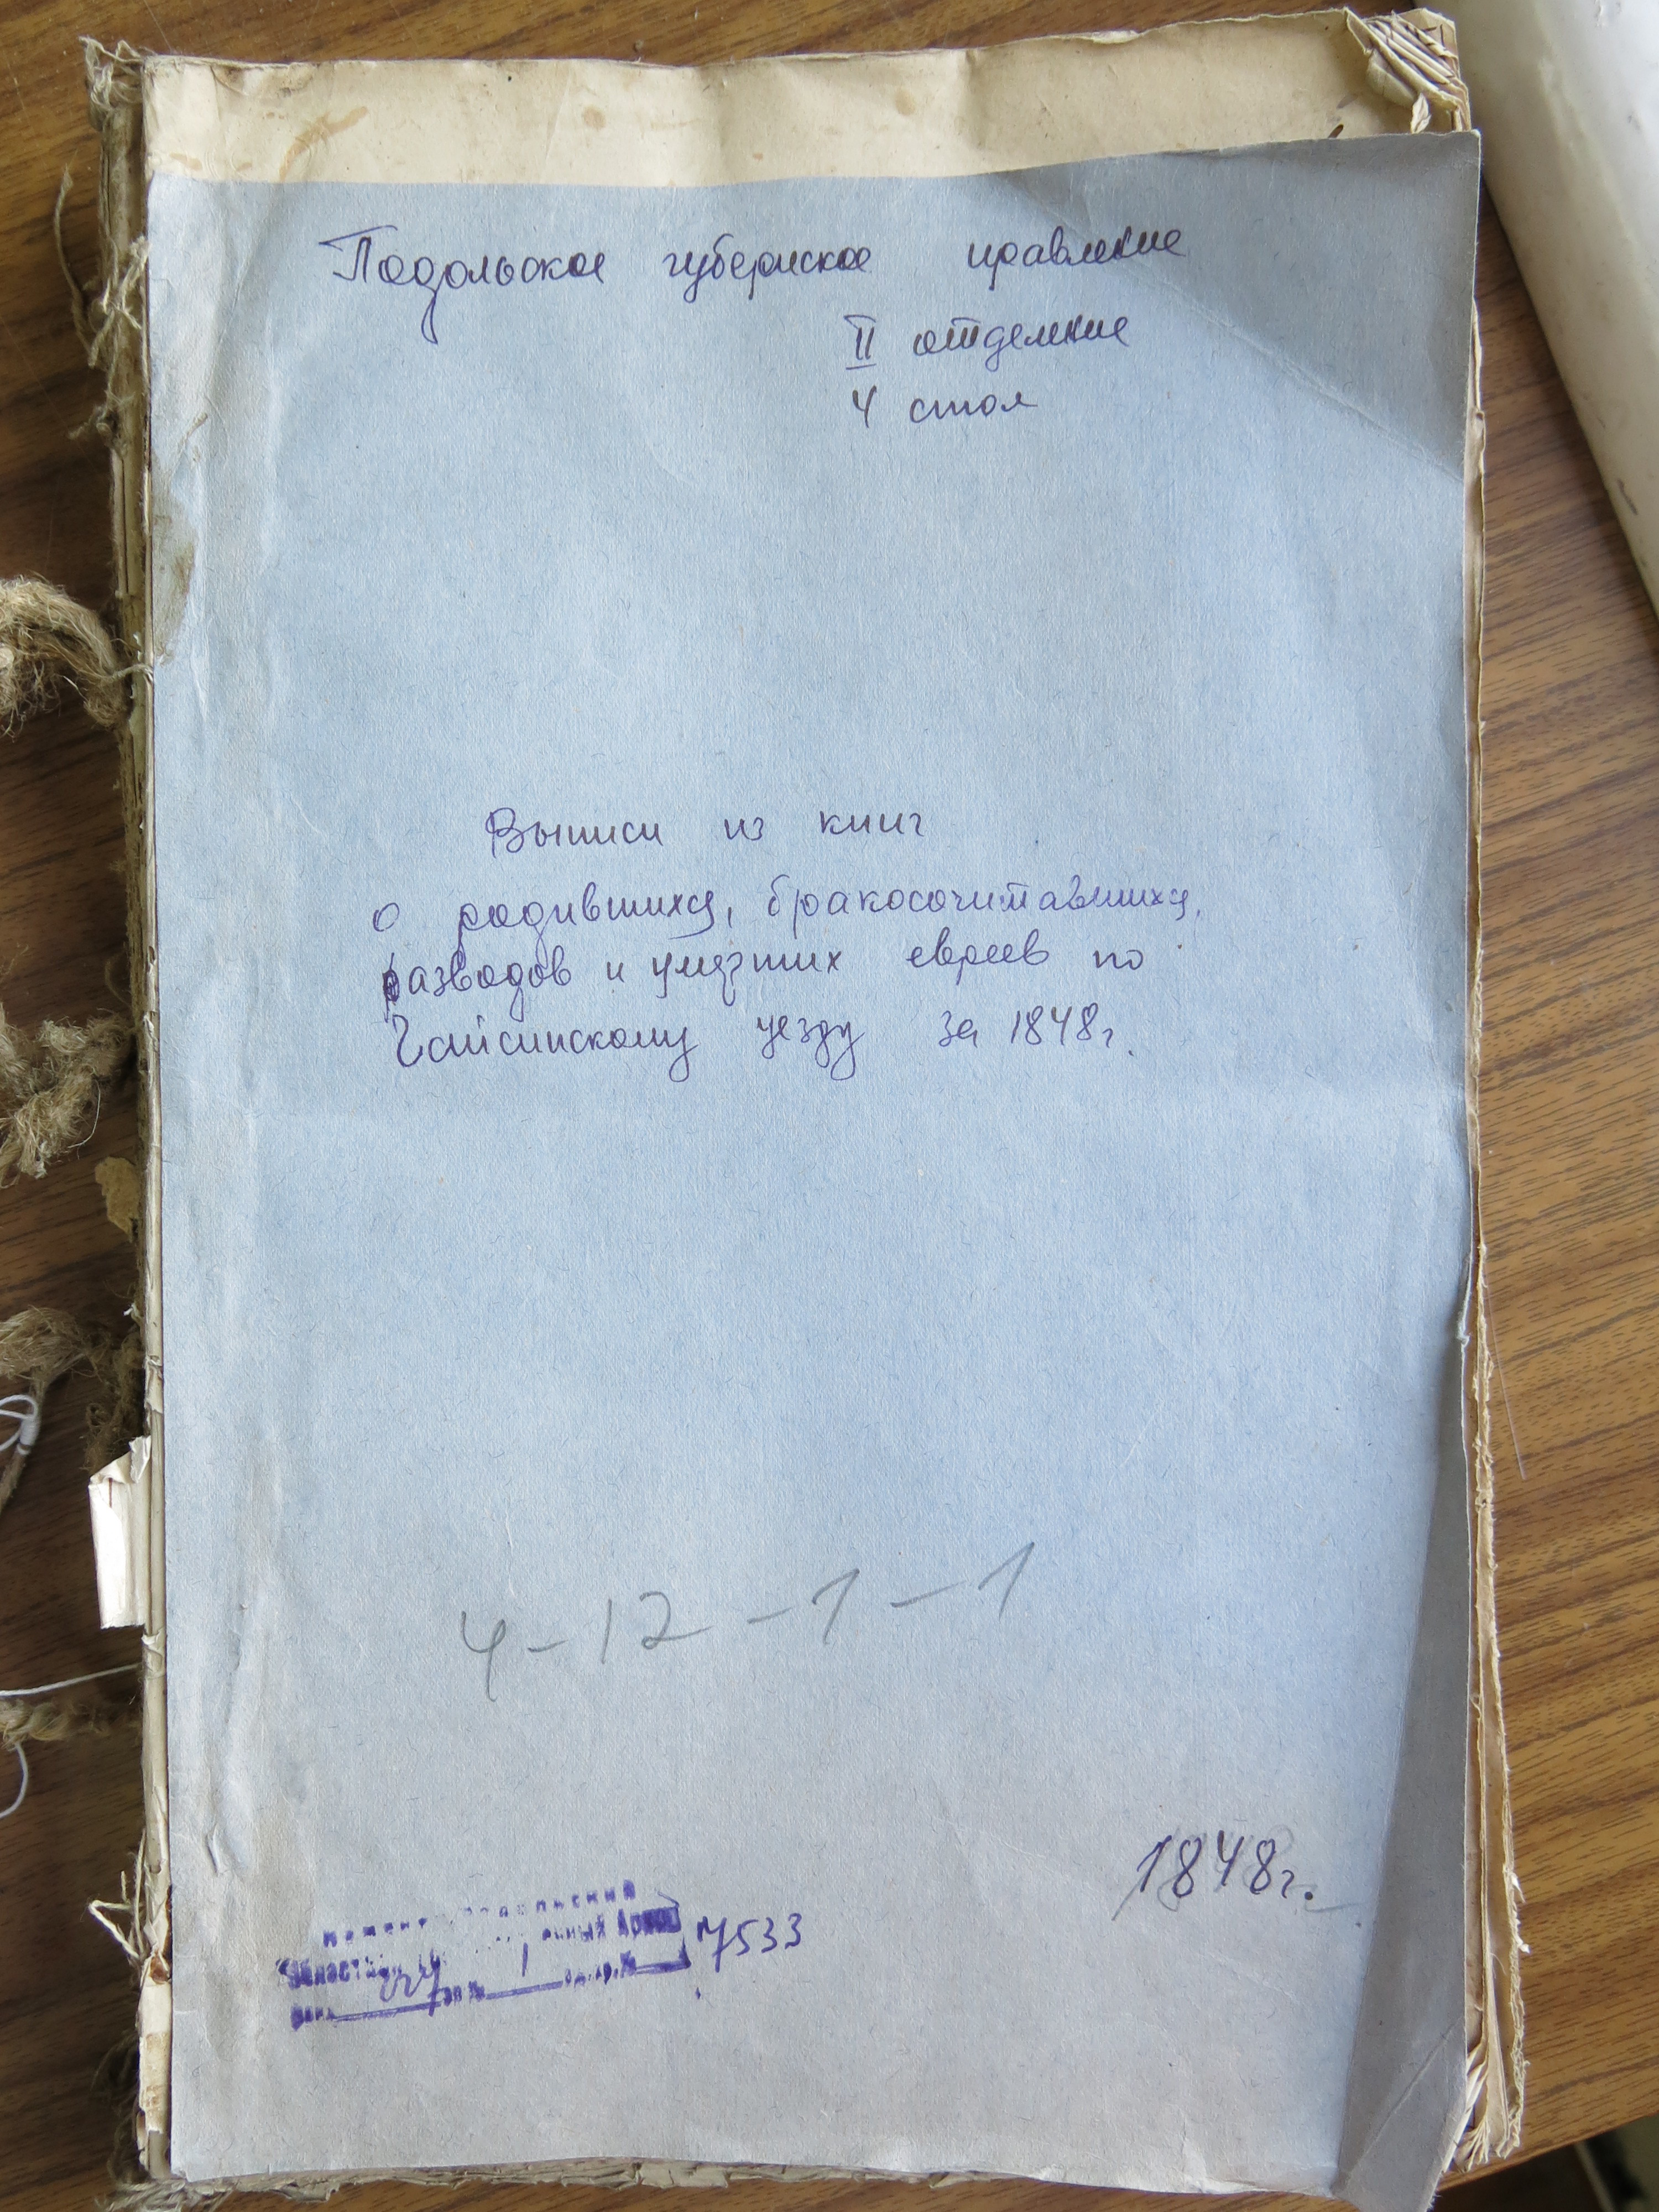 Подольское губернское правление
II отделение
4 стол
Выписи из книг
о родившихся, бракосочитавшихся,
разводов и умерших евреев по
Гайсинскому уезду за 1848г.
4-12-1-1
1848г.
7533